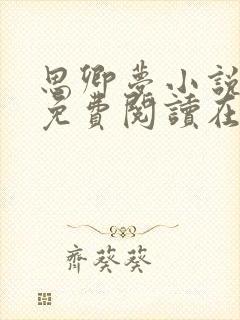 思卿夢小說
免費閱讀在
齊葵葵